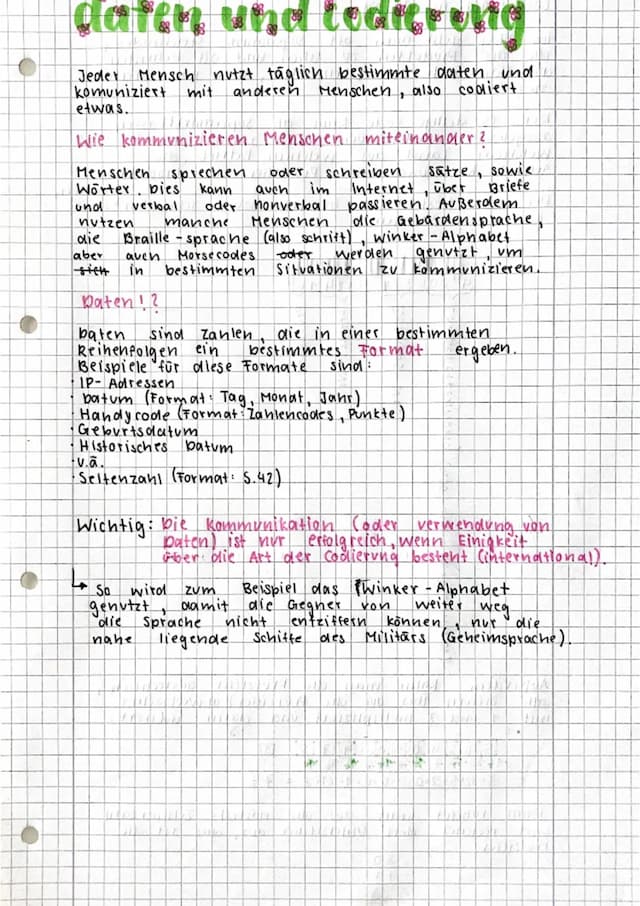 daten und codierung
Jeder Mensch nutzt täglich bestimmte daten und
komuniziert mit anderen Menschen, also codiert
etwas.
Wie kommunizieren Menschen miteinander?
Menschen sprechen oder schreiben sätze, sowie
Wörter. Dies kann auch im Internet, über Briefe
und verbal oder nonverbal passieren. Außerdem
nutzen manche Menschen die Gebärdensprache,
die Braille-sprache (also schrift), Winker-Alphabet
aber auch Morsecodes oder werden genutzt, um
sich in bestimmten Situationen zu kommunizieren.
Daten!?
Daten sind Zahlen, die in einer bestimmten
Reihenfolgen ein bestimmtes Format ergeben.
Beispiele für diese Formate sind:
· IP-Adressen
· Datum (Format: Tag, Monat, Jahr)
· Handycode (Format: Zahlencodes, Punkte)
· Geburtsdatum
· Historisches Datum
· v.ä.
· Seitenzahl (Format: S.42)
Wichtig: Die Kommunikation (oder verwendung von
Daten) ist nur erfolgreich, wenn Einigkeit
über die Art der Codierung besteht (international).
↳ So wird zum Beispiel das Winker-Alphabet
genutzt, damit die Gegner von weiter weg
die Sprache nicht entziffern können, nur die
nahe liegende Schiffe des Militärs (Geheimsprache).